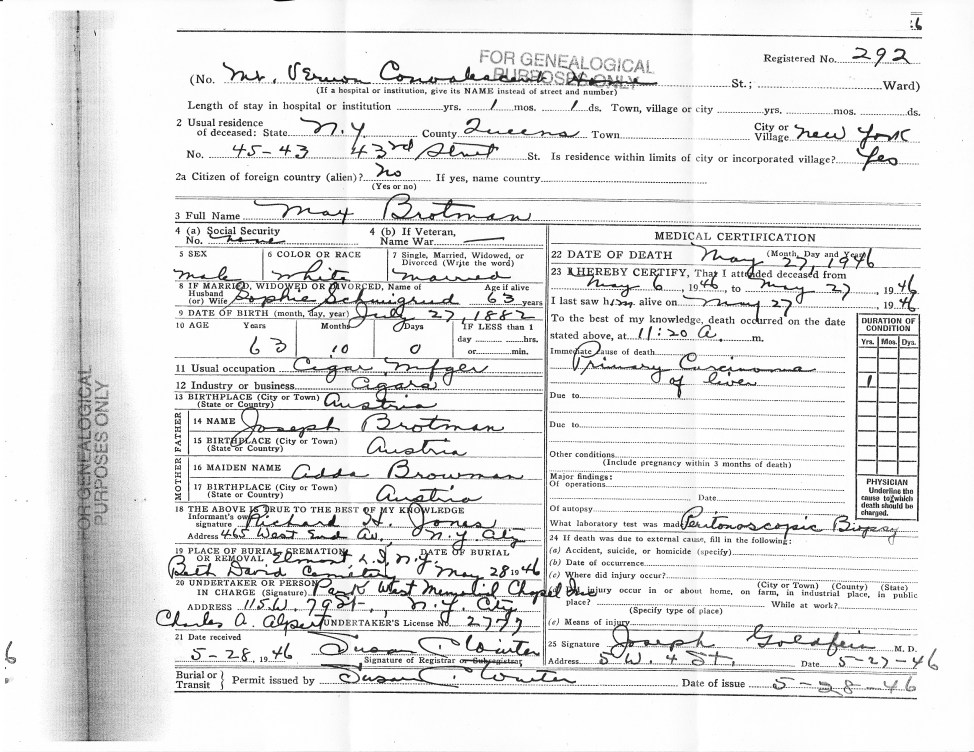 :6
FOR GENEALOGICAL
PURPOSES ONLY
Registered No. 292
(No. Mt. Vernon Convalescent Home St.; Ward)
(If a hospital or institution, give its NAME instead of street and number)
Length of stay in hospital or institution yrs. 1 mos. 1 ds. Town, village or city yrs. mos. ds.
2 Usual residence of deceased: State N.Y. County Queens Town City or Village New York
No. 45-43 43rd Street St. Is residence within limits of city or incorporated village? Yes
2a Citizen of foreign country (alien)? No If yes, name country
(Yes or no)
3 Full Name Max Brotman
4 (a) Social Security No. none 4 (b) If Veteran, Name War —
5 SEX 6 COLOR OR RACE 7 Single, Married, Widowed, or Divorced (Write the word)
male white married
8 IF MARRIED, WIDOWED OR DIVORCED, Name of Husband (or) Wife Sophie Schmigrud Age if alive 63 years
9 DATE OF BIRTH (month, day, year) July 27, 1882
10 AGE Years Months Days IF LESS than 1
63 10 0 day hrs. or min.
11 Usual occupation Cigar Mfger
12 Industry or business Cigars
13 BIRTHPLACE (City or Town) (State or Country) Austria
FATHER
14 NAME Joseph Brotman
15 BIRTHPLACE (City or Town) (State or Country) Austria
MOTHER
16 MAIDEN NAME Adda Browman
17 BIRTHPLACE (City or Town) (State or Country) Austria
18 THE ABOVE IS TRUE TO THE BEST OF MY KNOWLEDGE
Informant's own signature Richard H. Jones
Address 465 West End Av. N.Y. City
19 PLACE OF BURIAL, CREMATION OR REMOVAL Elmont, L.I., N.Y. DATE OF BURIAL
Beth David Cemetery May 28 1946
20 UNDERTAKER OR PERSON IN CHARGE (Signature) Park West Memorial Chapel Inc
ADDRESS 115 W. 79 St., N.Y. City
Charles A. Alpert UNDERTAKER'S License No. 2777
21 Date received
5-28, 1946 Susan C. Winter
Signature of Registrar or Subregistrar
Burial or Transit } Permit issued by Susan C. Winter Date of issue 5-28-46
MEDICAL CERTIFICATION
22 DATE OF DEATH May 27, 1946
(Month, Day and Year)
23 I HEREBY CERTIFY, That I attended deceased from
May 6, 1946, to May 27, 1946
I last saw him alive on May 27 1946
To the best of my knowledge, death occurred on the date
stated above, at 11:20 A. m.
DURATION OF CONDITION
Yrs. Mos. Dys.
Immediate cause of death
Primary Carcinoma
of liver 1
Due to
Due to
Other conditions
(Include pregnancy within 3 months of death)
Major findings:
Of operations
Date
Of autopsy
What laboratory test was made Peritonoscopic Biopsy
PHYSICIAN
Underline the cause to which death should be charged.
24 If death was due to external cause, fill in the following:
(a) Accident, suicide, or homicide (specify)
(b) Date of occurrence
(c) Where did injury occur?
(City or Town) (County) (State)
injury occur in or about home, on farm, in industrial place, in public
place? While at work?
(Specify type of place)
(e) Means of injury
25 Signature Joseph Goldfein M. D.
Address 5 W. 4 St. Date 5-27-46
FOR GENEALOGICAL
PURPOSES ONLY
6